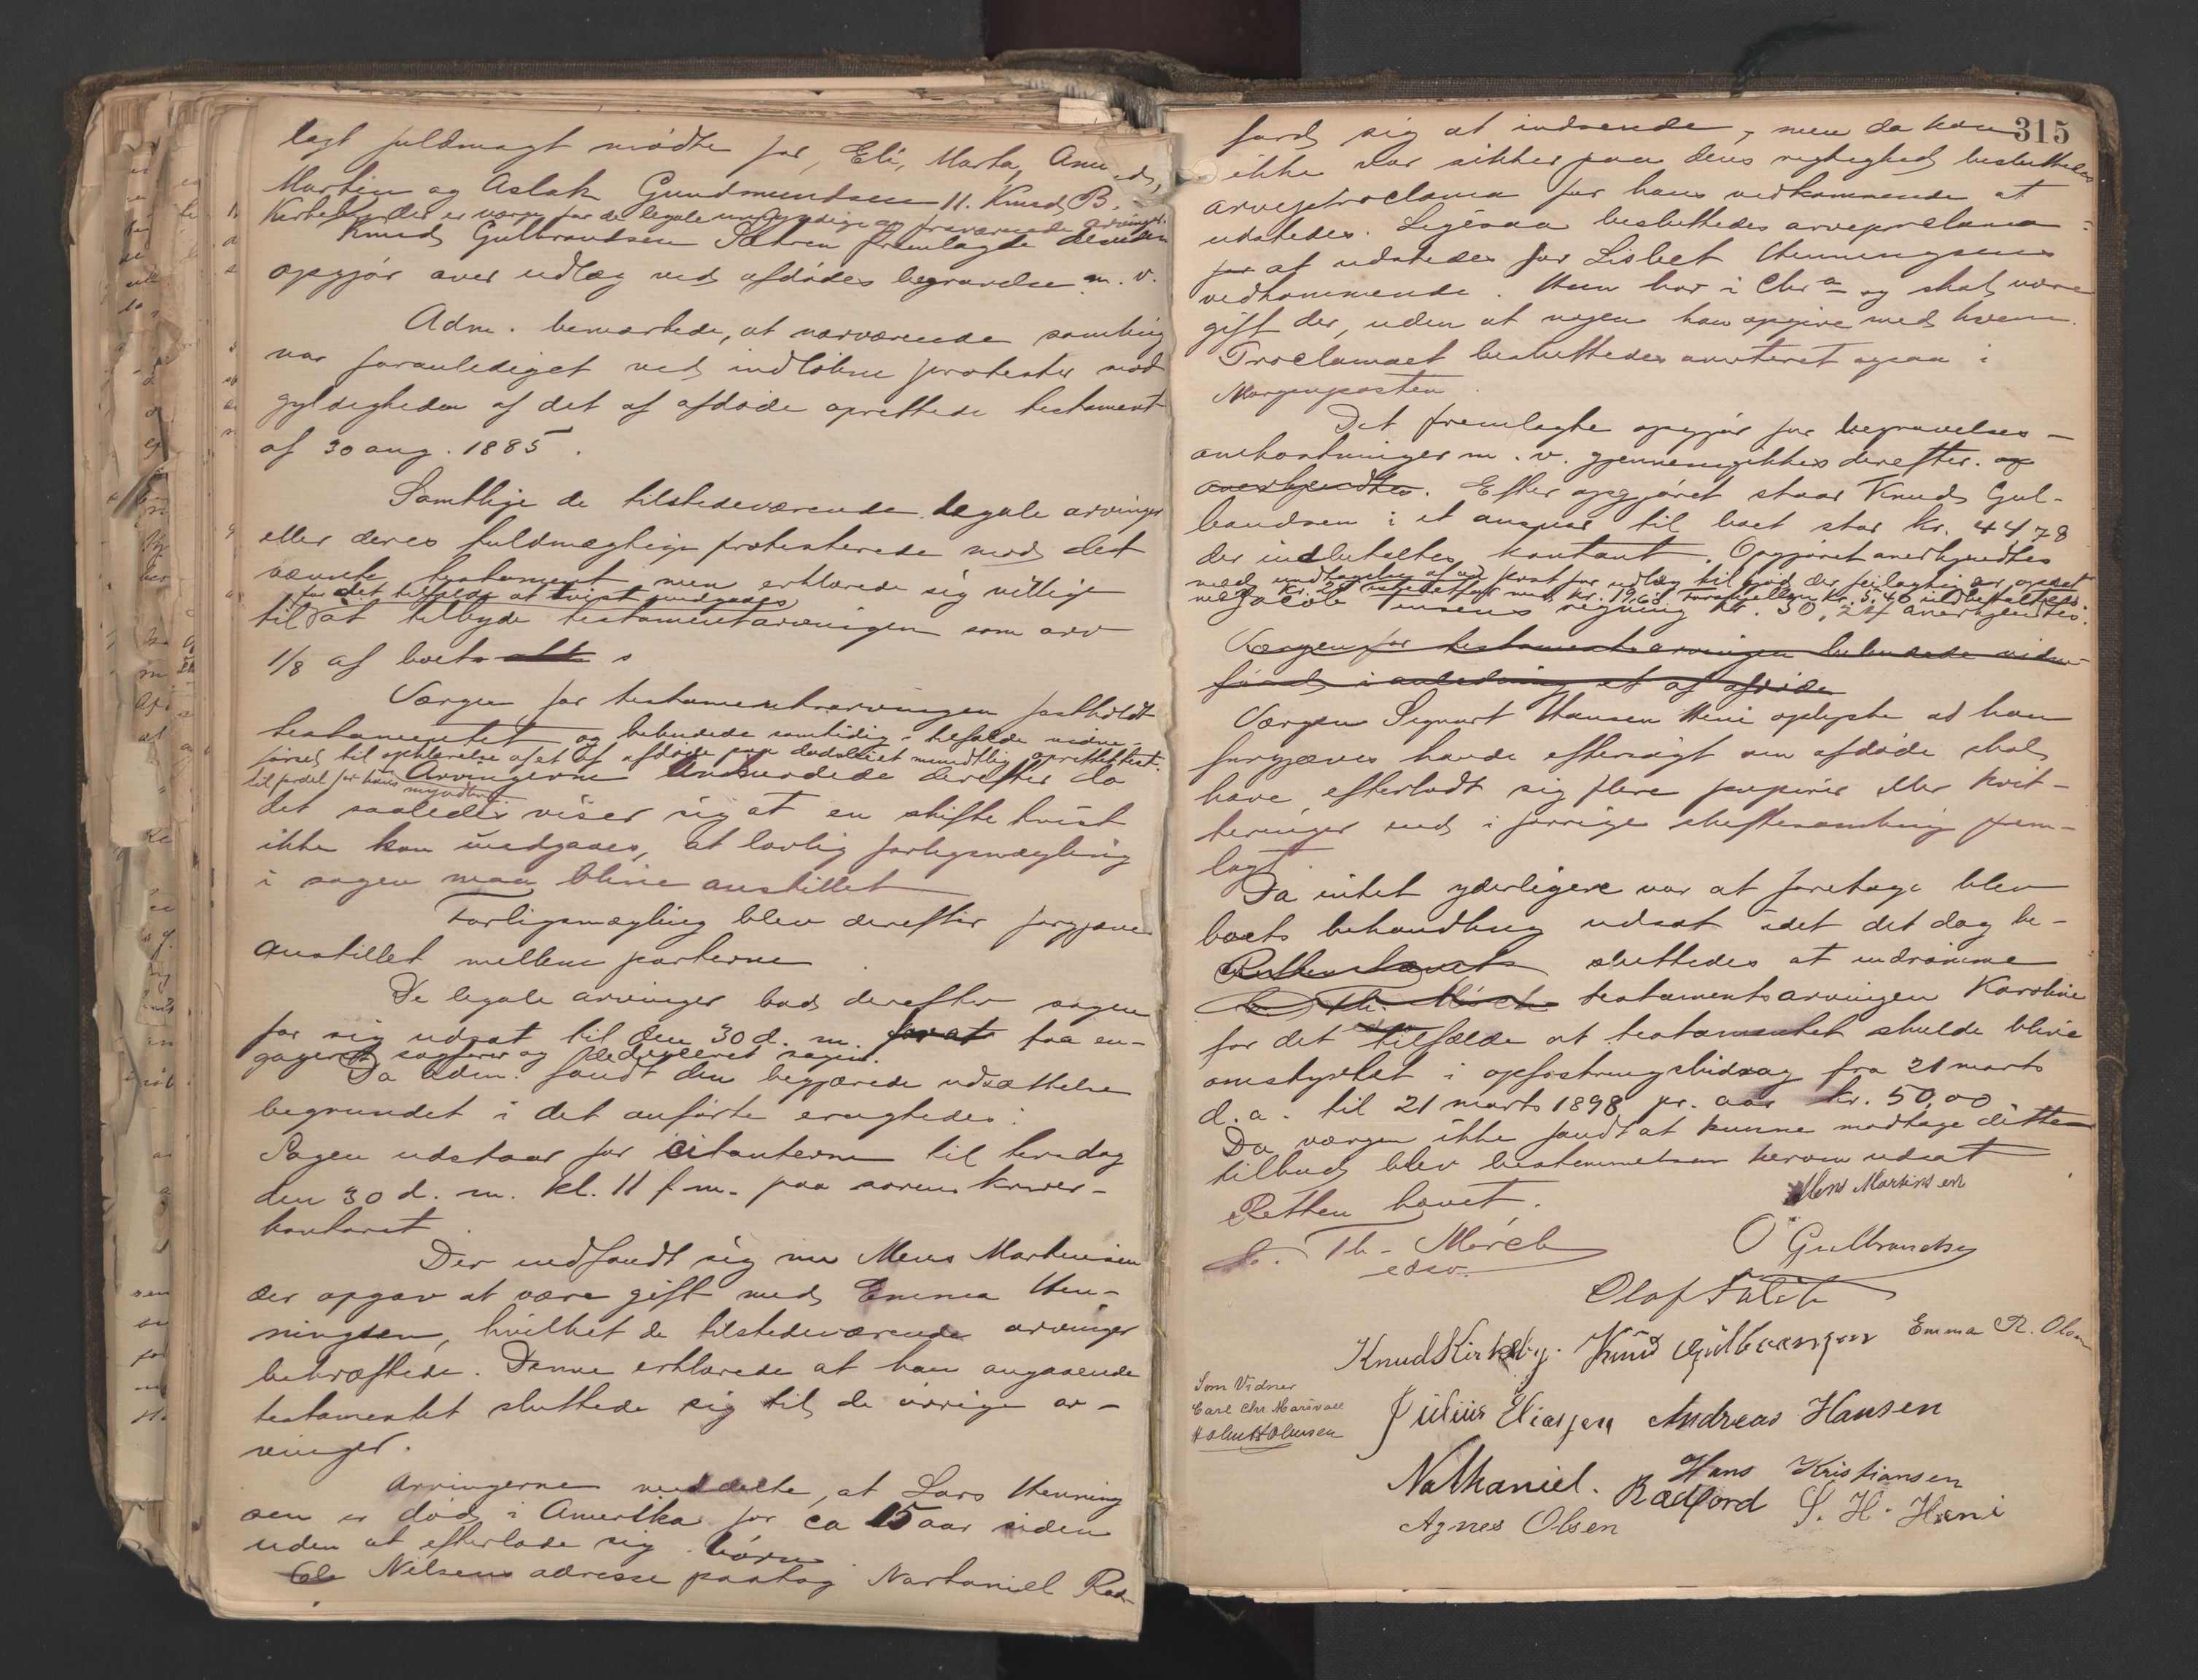 lagt fuldmagt mødte for, Eli, Marta, Amunds,
Martin og Aslak Gundmundsen 11. Knud B.
Kirkeby der er værge for de legale umyndige og fraværende arvinger.
Knud Gulbrandsen Sætren fremlagde desuden
opgjør over udlæg ved afdødes begravelse m. v.
Adm. bemærkede, at nærværende samling
var foranlediget ved indløbne protester mod
gyldigheden af det af afdøde oprettede testament
af 30 aug. 1885.
Samtlige de tilstedeværende legale arvinger
eller deres fuldmægtige protesterede mod det
nævnte testament men erklærede sig villige
for det tilfælde at tvist undgaaes
til at tilbyde testamentarvingen som arv
1/8 af boet
Værgen for testamentsarvingen fastholdt
testamentet og bebudede samtidig i tilfælde vidne-
førsel til opklarelse af et af afdøde paa dødsleiet mundtlig oprettet test.
til fordel for hans myndling
Arvingerne derefter da
det saaledes viser sig at en skiftetvist
ikke kan undgaaes, at lovlig forligsmægling
i sagen maa blive anstillet
Forligsmægling blev derefter forgjæves
anstillet mellem parterne
De legale arvinger bad derefter sagen
for sig udsat til den 30 d. m. for at faa en-
gageret sagfører og deduceret sagen.
Da adm. fandt den begjærede udsættelse
begrundet i det anførte eragtedes:
Sagen udstaar for citanterne til tirsdag
den 30 d. m. kl. 11 f m. paa sorenskriver-
kontoret.
Der indfandt sig nu Mens Martinsen
der opgav at være gift med Emma Hen-
ningsen, hvilket de tilstedeværende arvinger
bekræftede. Denne erklærede at han angaaende
testamentet sluttede sig til de øvrige ar-
vinger.
Arvingerne meddelte, at Lars Henning
sen er død i Amerika for ca 15 aar siden
uden at efterlade sig børn
Ole Nilsens adresse paatog Nartaniel Rad-
315
ford sig at indsende, men da han
ikke var sikker paa dens rigtighed besluttedes
arveproclama for hans vedkommende at
udstedes. Ligesaa besluttedes arveproclama
for at udstedes for Lisbet Henningsens
vedkommende. Hun bor i Chra og skal være
gift der, uden at nogen kan opgive med hvem.
Proclamaet besluttedes averteret ogsaa i
Morgenposten.
Det fremlagte opgjør for begravelses-
omkostninger m. v. gjennemgikkes derefter. og
anerkjendtes. Efter opgjøret staar Knud Gul-
bandsen i et ansvar til boet stor kr. 4478
der indbetaltes kontant. Opgjøret anerkjendtes
med undtagelse af en post for udlæg til der feilagtig var opsat
med kr. 25 istedetfor med kr. 19,60. Forskjellen kr. 5,40 indbetaltes.
Jacob regning kr. 30,24 anerkjendtes.
Værgen for testamentsarvingen bebudede vidne-
førsel i anledning et af afdøde
Værgen Sigvart Hansen Heni oplyste at han
forgjæves havde eftersøgt om afdøde skal
have efterladt sig flere papirer eller kvit-
teringer end i forrige skiftesamling frem-
lagt.
Da intet yderligere var at foretage blev
boets behandling udsat idet det dog be-
Retten hævet sluttedes at indrømme
Th. Mørch testamentsarvingen Karoline
for det tilfælde at testamentet skulde blive
omstyrtet i opfostringsbidrag fra 21 marts
d. a. til 21 marts 1898 pr. aar kr. 50,00
Da værgen ikke fandt at kunne modtage dette
tilbud blev bestemmelsen herom udsat
Retten hævet.
Mens Martinsen
Th. Mørch
edsv.
O Gulbrandsen
Olaf
Knud Kirkeby. Knud Gulbransen Emma R. Olsen
Som Vidner
Carl Chr
Holm Holmsen
Julius Eliassen Andreas Hansen
Nathaniel. Radford Hans Kristiansen
Agnes Olsen S. H. Heni